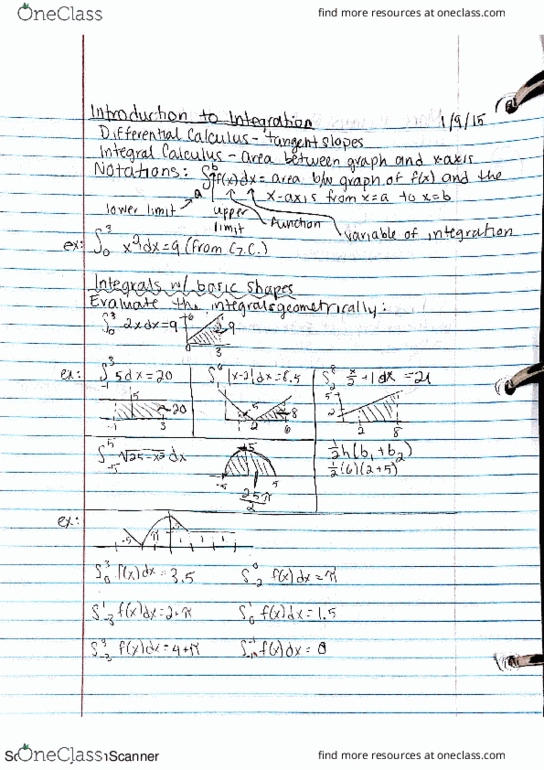 OneClass
find more resources at oneclass.com
Introduction to Integration 1/9/15
Differential Calculus - tangent slopes
Integral Calculus - area between graph and x-axis
Notations: ∫ₐᵇ f(x)dx = area b/w graph of f(x) and the
x-axis from x=a to x=b
lower limit upper limit function variable of integration
ex: ∫₀³ x²dx=9 (from G.C.)
Integrals w/ basic shapes
Evaluate the integrals geometrically:
∫₀³ 2xdx=9 6 9
3
ex: ∫₋₁³ 5dx=20 ∫₁⁶ |x-2|dx=8.5 ∫₂⁸ x/2+1dx=21
5 20 .5 8 5 2
-1 3 1 2 6 2 8
∫₋₅⁵ √25-x² dx 5 ½h(b₁+b₂)
-5 5 ½(6)(2+5)
25π/2
ex:
.5 π
∫₀³ f(x)dx=3.5 ∫₋₂⁰ f(x)dx=π
∫₋₃¹ f(x)dx=2+π ∫₀¹ f(x)dx=1.5
∫₋₃³ f(x)dx=4+π f(x)dx=0
OneClass Scanner
find more resources at oneclass.com